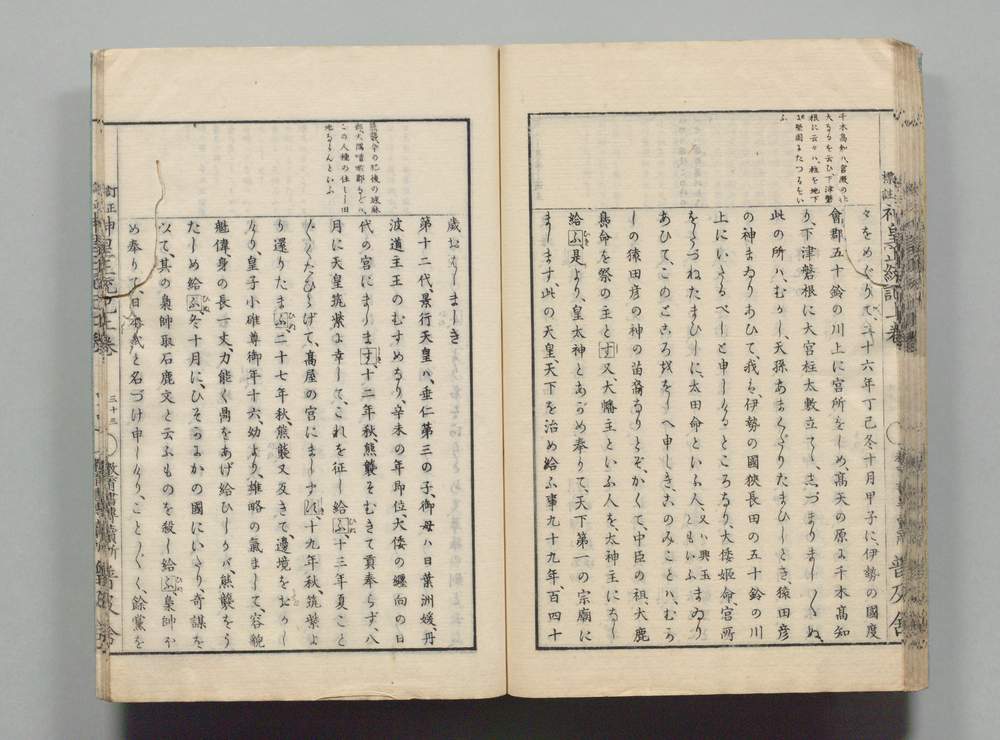 千木高知ハ宮殿の
大なるを云ひ下津磐
根に云々ハ柱を地下
に堅固にたつるをい
ふ
々をめぐりて、二十六年丁巳冬十月甲子に、伊勢の國度
會郡五十鈴の川上に宮所をしめ、高天の原に千木高知
り、下津磐根に大宮柱太敷立てゝ、しづまりましゝぬ、
此の所ハ、むかし、天孫あまくだりたまひしとき、猿田彦
の神まゐりあひて、我は、伊勢の國狹長田の五十鈴の川
上にいたるべしと申しけるところなり、大倭姫命、宮所
をたづねたまひしに、太田命といふ人、又ハ興玉ともいふまゐり
あひて、このところををしへ申しき、このみことハ、むかし
の猿田彦の神の苗裔なりとぞ、かくて、中臣の祖、大鹿
島命を祭の主とす、又、大幡主といふ人を、太神主になし
給ふ、是より、皇太神とあがめ奉りて、天下第一の宗廟に
まします、此の天皇、天下を治め給ふ事九十九年、百四十
標註 神皇正統記 上卷
普及舍
熊襲今の肥後の球麻
郡大隅噌唹郡などハ
この人種の住し旧
地ならんといふ
歲おはしましき
第十二代、景行天皇ハ、垂仁第三の子、御母ハ日葉洲媛、丹
波道主王のむすめなり、辛未の年即位、大倭の纏向の日
代の宮にまします、十二年秋、熊襲そむきて貢奉らず、八
月に天皇筑紫に幸して、これを征し給ふ、十三年夏、こと
〲くたひらげて、高屋の宮にまします、十九年秋、筑紫よ
り還りたまふ、二十七年秋、熊襲又反きて、邊境ををかし
けり、皇子小碓尊御年十六、幼より、雄略の氣まして、容貌
魁偉身の長一丈、力能く鼎をあげ給ひしかバ、熊襲をう
たしめ給ふ、冬十月に、ひそにかの國にいたり奇謀を
以て、其の梟帥取石鹿文と云ふものを殺し給ふ、梟帥ほ
め奉りて、日本武と名づけ申しけり、こと〲く、餘黨を
訂正 神皇正統記 上卷
三十三
普及舍